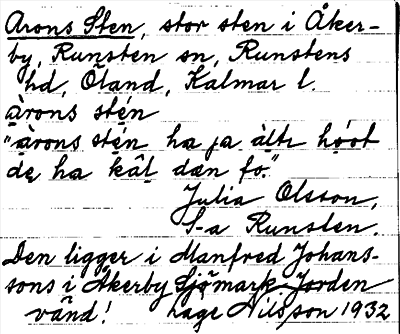 Arons Sten, stor sten i Åker-
by, Runsten sn, Runstens
hd, Öland, Kalmar l.
àrons stén
"àrons stén ha ja àltı hóot
de ha kâl dæn fö."
Julia Olsson,
S-a Runsten.
Den ligger i Manfred Johans-
sons i Åkerby Sjömark. Jorden
vänd! Hage Nilsson 1932